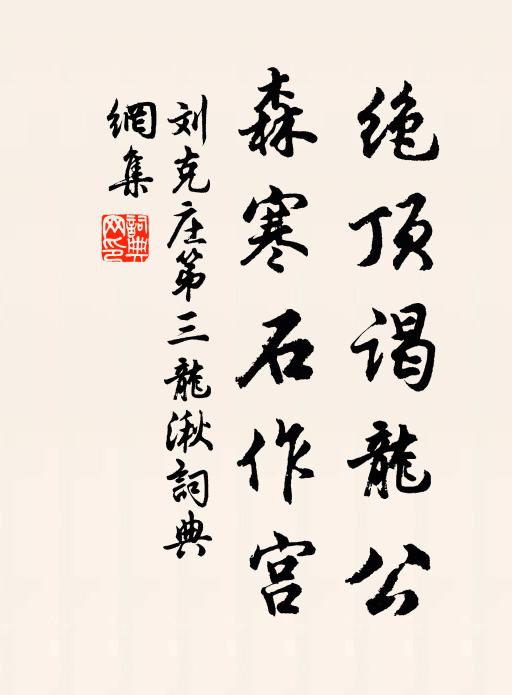 绝顶谒龍公
森寒石作宫
刘克庄第三龍湫詞典
網集
詞典
网印